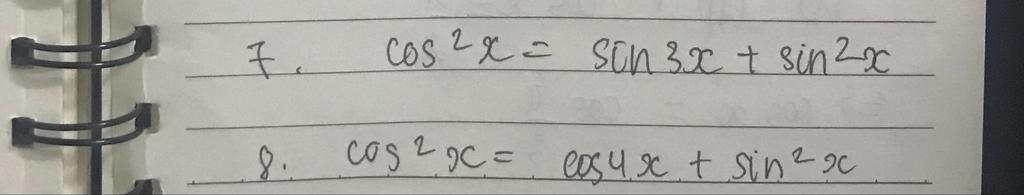 7. cos²x = sin3x + sin²x
8. cos²x = cos4x + sin²x